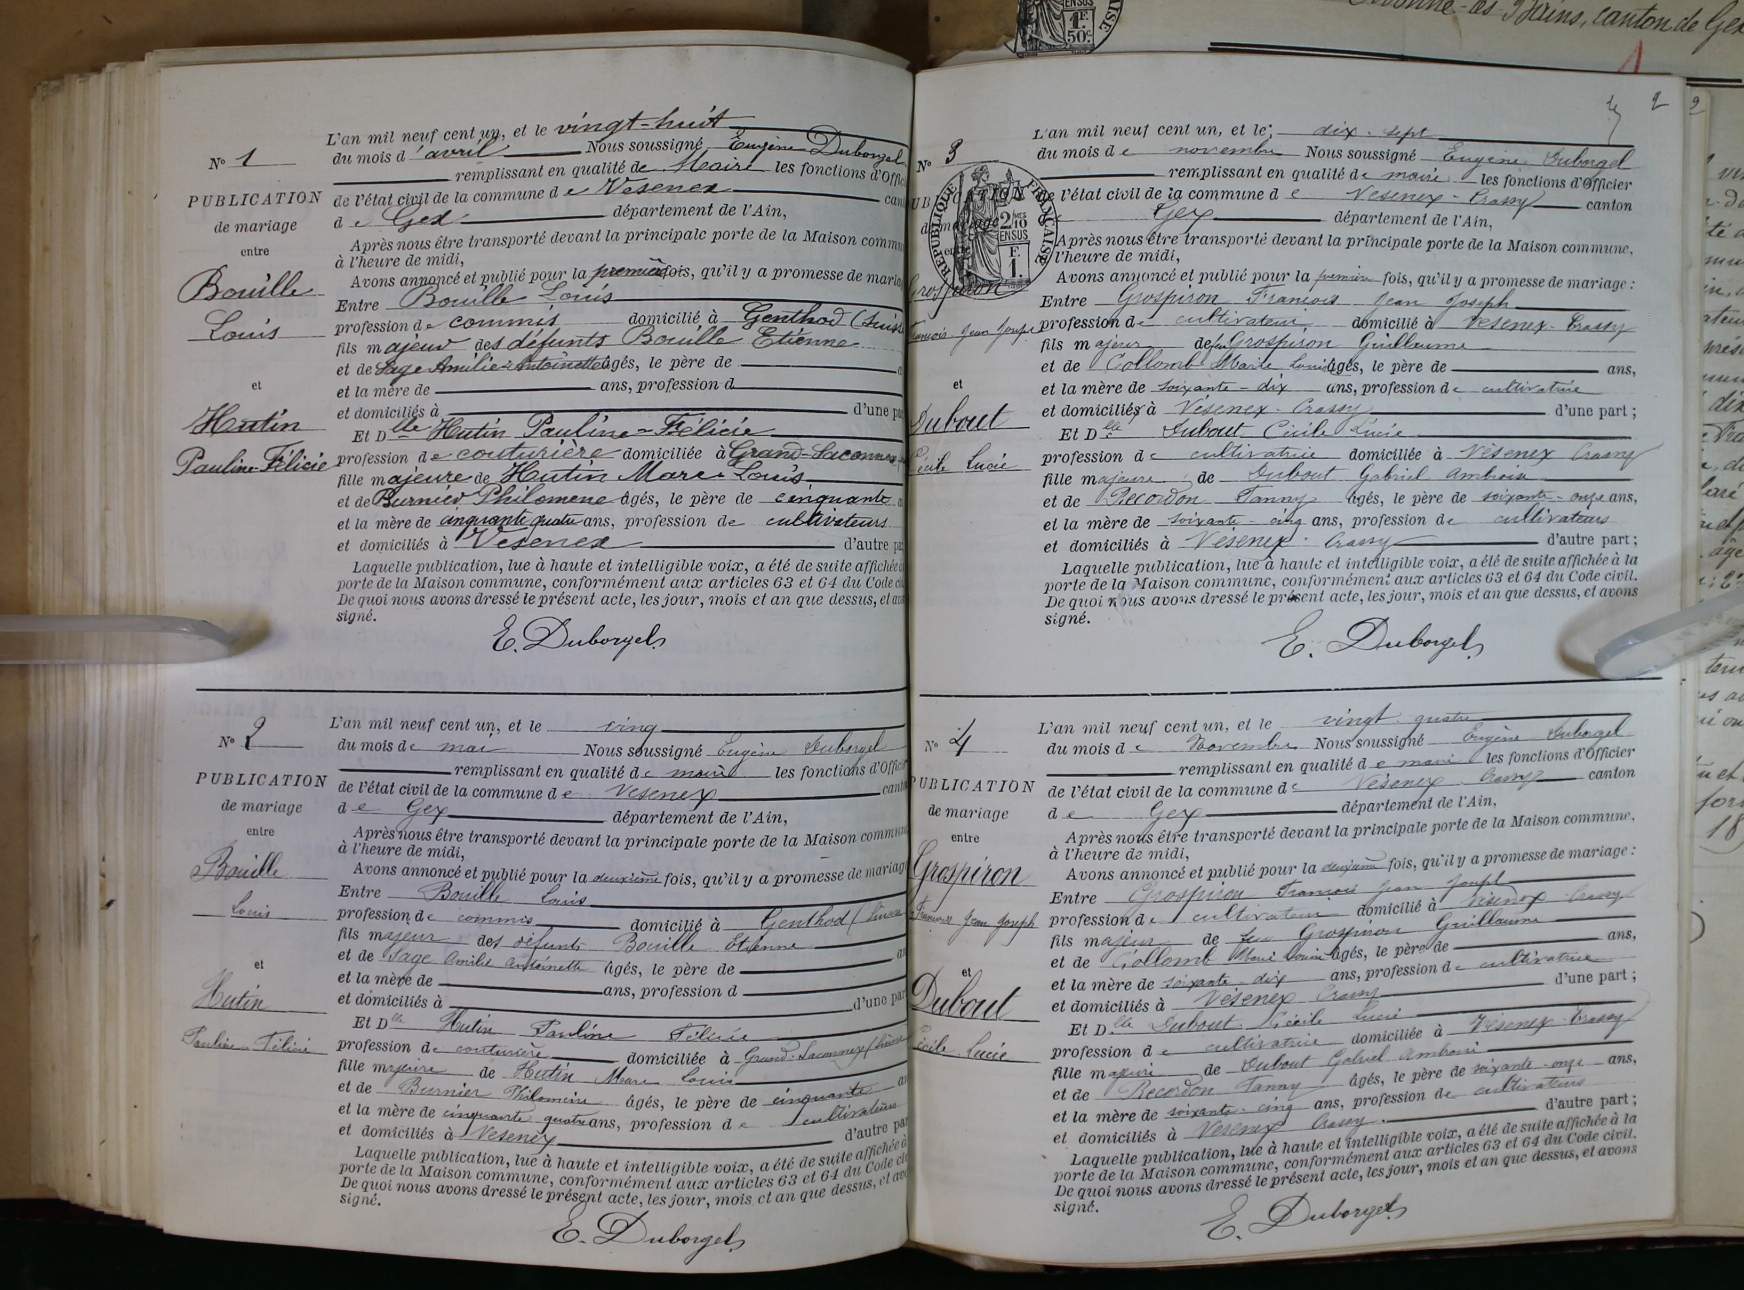 Nº 1
PUBLICATION
de mariage
entre
Bouille
Louis
et
Hutin
Pauline-Félicie
L'an mil neuf cent un, et le vingt-huit
du mois d'avril Nous soussigné Eugène Duborgel
remplissant en qualité de Maire les fonctions d'Offic
de l'état civil de la commune de Vesenex can
de Gex département de l'Ain,
Après nous être transporté devant la principale porte de la Maison commu
à l'heure de midi,
Avons annoncé et publié pour la première fois, qu'il y a promesse de maria
Entre Bouille Louis
profession de commis domicilié à Genthod (Suisse
fils majeur des défunts Bouille Etienne
et de Sage Amélie-Antoinette âgés, le père de
et la mère de ans, profession d
et domiciliés à d'une pa
Et Dlle Hutin Pauline-Félicie
profession de couturière domiciliée à Grand-Saconnex
fille majeure de Hutin Marc Louis
et de Burnier Philomène âgés, le père de cinquante a
et la mère de cinquante quatre ans, profession de cultivateurs
et domiciliés à Vesenex d'autre pa
Laquelle publication, lue à haute et intelligible voix, a été de suite affichée
porte de la Maison commune, conformément aux articles 63 et 64 du Code c
De quoi nous avons dressé le présent acte, les jour, mois et an que dessus, et av
signé.
E. Duborgel
Nº 2
PUBLICATION
de mariage
entre
Bouille
Louis
et
Hutin
Pauline-Félicie
L'an mil neuf cent un, et le cinq
du mois de mai Nous soussigné Eugène Duborgel
remplissant en qualité de maire les fonctions d'Offic
de l'état civil de la commune de Vesenex canto
de Gex département de l'Ain,
Après nous être transporté devant la principale porte de la Maison commun
à l'heure de midi,
Avons annoncé et publié pour la deuxième fois, qu'il y a promesse de mariag
Entre Bouille Louis
profession de commis domicilié à Genthod (Suisse
fils majeur des défunts Bouille Etienne
et de Sage Amélie Antoinette âgés, le père de an
et la mère de ans, profession d
et domiciliés à d'une par
Et Dlle Hutin Pauline Félicie
profession de couturière domiciliée à Grand-Saconnex (Suisse
fille majeure de Hutin Marc Louis
et de Burnier Philomène âgés, le père de cinquante an
et la mère de cinquante quatre ans, profession de cultivateurs
et domiciliés à Vesenex d'autre par
Laquelle publication, lue à haute et intelligible voix, a été de suite affichée à
porte de la Maison commune, conformément aux articles 63 et 64 du Code ci
De quoi nous avons dressé le présent acte, les jour, mois et an que dessus, et avo
signé.
E. Duborgel
2
Nº 3
RÉPUBLIQUE FRANÇAISE
2/10 EN SUS
1 F.
Grospiron
François Jean Joseph
et
Dubout
Cécile Lucie
L'an mil neuf cent un, et le dix-sept
du mois de novembre Nous soussigné Eugène Duborgel
remplissant en qualité de maire les fonctions d'Officier
de l'état civil de la commune de Vesenex-Crassy canton
Gex département de l'Ain,
Après nous être transporté devant la principale porte de la Maison commune,
à l'heure de midi,
Avons annoncé et publié pour la première fois, qu'il y a promesse de mariage :
Entre Grospiron François Jean Joseph
profession de cultivateur domicilié à Vesenex-Crassy
fils majeur de feu Grospiron Guillaume
et de Collomb Marie Louise âgés, le père de ans,
et la mère de soixante-dix ans, profession de cultivatrice
et domiciliés à Vésenex-Crassy d'une part ;
Et Dlle Dubout Cécile Lucie
profession de cultivatrice domiciliée à Vésenex Crassy
fille majeure de Dubout Gabriel Ambroise
et de Recordon Fanny âgés, le père de soixante-onze ans,
et la mère de soixante-cinq ans, profession de cultivateurs
et domiciliés à Vésenex-Crassy d'autre part ;
Laquelle publication, lue à haute et intelligible voix, a été de suite affichée à la
porte de la Maison commune, conformément aux articles 63 et 64 du Code civil.
De quoi nous avons dressé le présent acte, les jour, mois et an que dessus, et avons
signé.
E. Duborgel
Nº 4
PUBLICATION
de mariage
entre
Grospiron
François Jean Joseph
et
Dubout
Cécile Lucie
L'an mil neuf cent un, et le vingt-quatre
du mois de Novembre Nous soussigné Eugène Duborgel
remplissant en qualité de maire les fonctions d'Officier
de l'état civil de la commune de Vésenex Crassy canton
de Gex département de l'Ain,
Après nous être transporté devant la principale porte de la Maison commune,
à l'heure de midi,
Avons annoncé et publié pour la deuxième fois, qu'il y a promesse de mariage :
Entre Grospiron François Jean Joseph
profession de cultivateur domicilié à Vésenex-Crassy
fils majeur de feu Grospiron Guillaume
et de Collomb Marie Louise âgés, le père de ans,
et la mère de soixante-dix ans, profession de cultivatrice
et domiciliés à Vésenex Crassy d'une part ;
Et Dlle Dubout Cécile Lucie
profession de cultivatrice domiciliée à Vésenex-Crassy
fille majeure de Dubout Gabriel Ambroise
et de Recordon Fanny âgés, le père de soixante-onze ans,
et la mère de soixante-cinq ans, profession de cultivateurs
et domiciliés à Vésenex Crassy d'autre part ;
Laquelle publication, lue à haute et intelligible voix, a été de suite affichée à la
porte de la Maison commune, conformément aux articles 63 et 64 du Code civil.
De quoi nous avons dressé le présent acte, les jour, mois et an que dessus, et avons
signé.
E. Duborgel
1 F. 50 c.
-les-Bains, canton de Gex